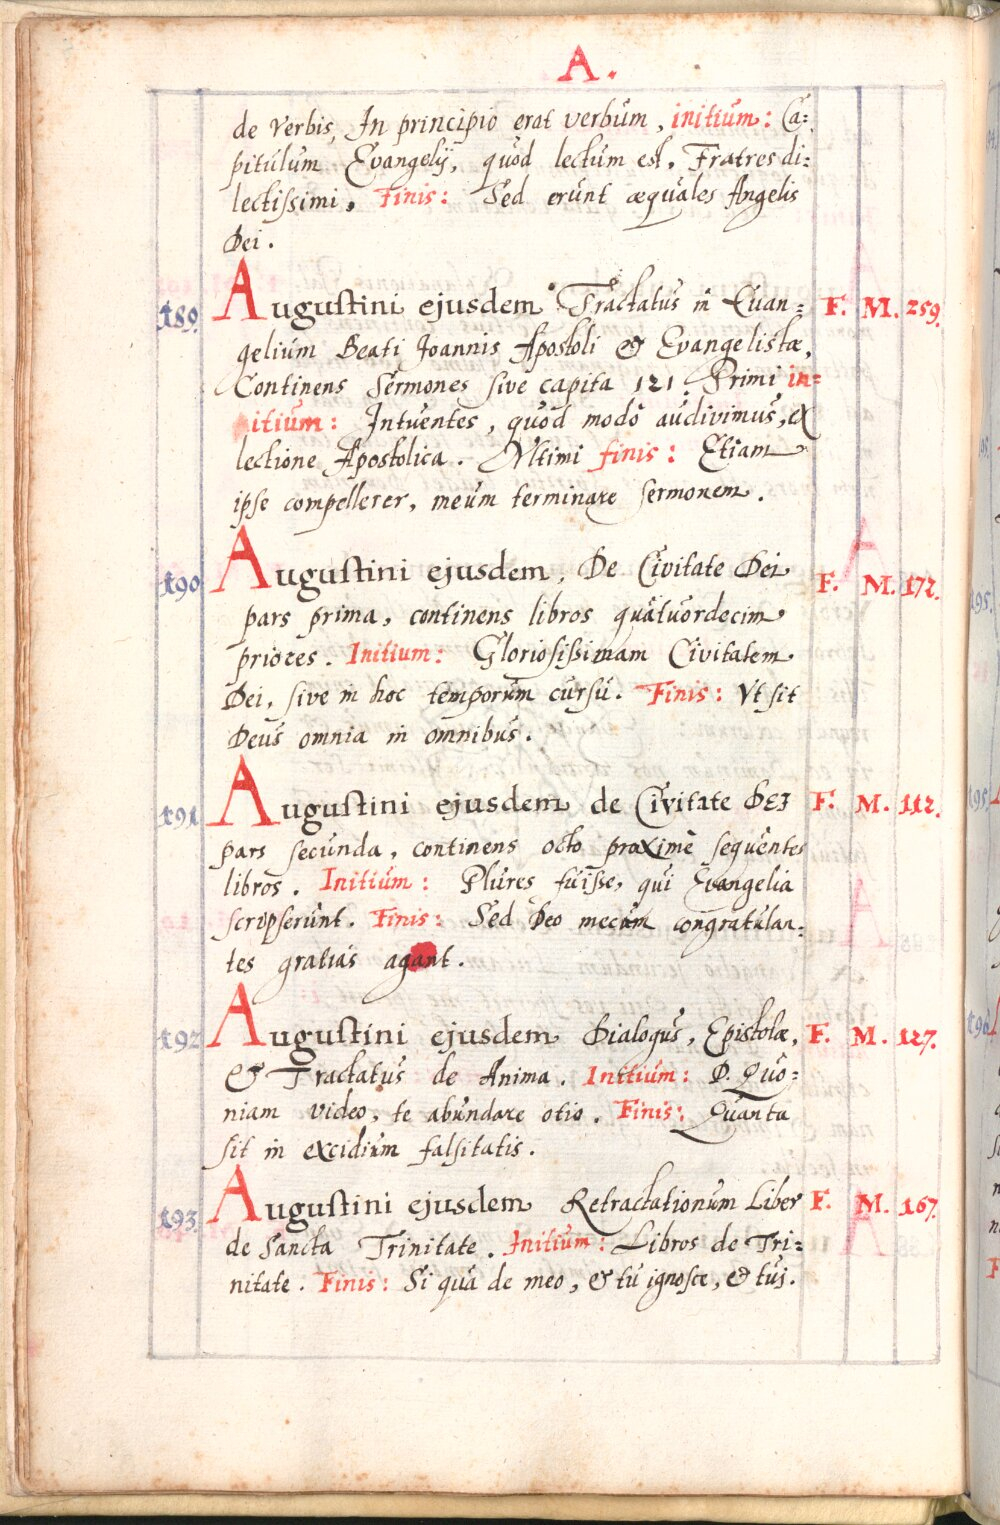 A.
de Verbis, In principio erat verbum, initium: Ca:
pitulum Evangelij, quod lectum est, Fratres di:
lectissimi, Finis: Sed erunt æquales Angelis
Dei.
189. Augustini ejusdem Tractatus in Euan= F. M. 259.
gelium Beati Joannis Apostoli & Evangelistæ,
Continens Sermones sive capita 121. Primi in=
itium: Intuentes, quod modò audivimus, ex
lectione Apostolica. Vltimi finis: Etiam
ipse compellerer, meum terminare sermonem.
190 Augustini ejusdem, De Civitate Dei F. M. 172.
pars prima, continens libros quatuordecim
priores. Initium: Gloriosißimam Civitatem
Dei, sive in hoc temporum cursu. Finis: Vt sit
Deus omnia in omnibus.
191 Augustini ejusdem de Civitate DEI F. M. 112.
pars secunda, continens octo proximè sequentes
libros. Initium: Plures fuisse, qui Evangelia
scripserunt. Finis: Sed Deo mecum congratulan:
tes gratias agant.
192 Augustini ejusdem Dialogus, Epistolæ, F. M. 127.
& Tractatus de Anima. Initium: D. Quo:
niam video, te abundare otio. Finis: Quanta
sit in excidium falsitatis.
193. Augustini ejusdem Retractationum Liber F. M. 167.
de Sancta Trinitate. Initium: Libros de Tri:
nitate. Finis: Si qua de meo, & tu ignosce, & tuj.
195.
195.
196